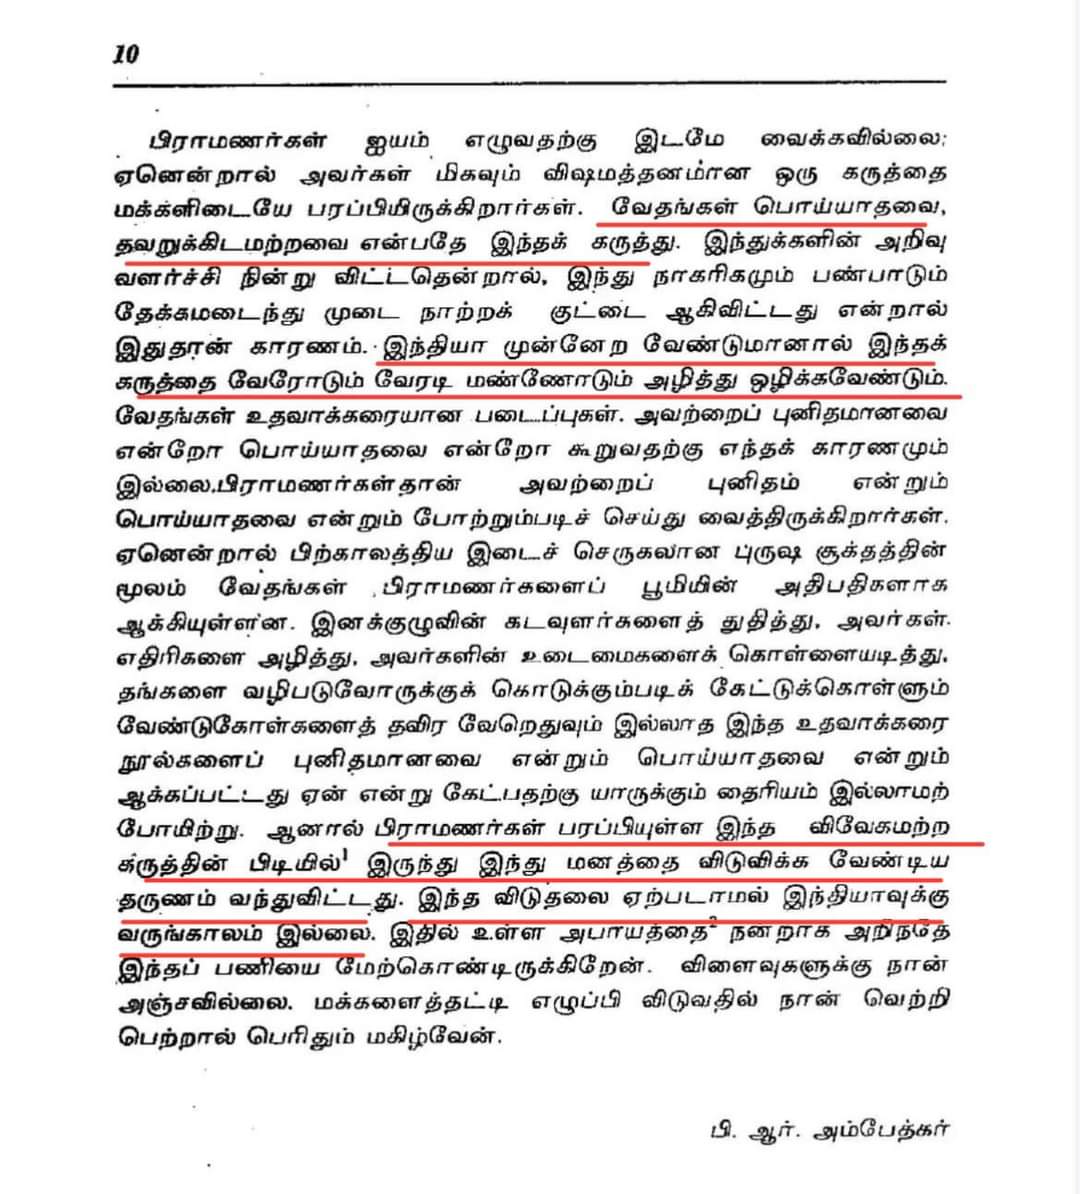 10
பிராமணர்கள் ஐயம் எழுவதற்கு இடமே வைக்கவில்லை;
ஏனென்றால் அவர்கள் மிகவும் விஷமத்தனமான ஒரு கருத்தை
மக்களிடையே பரப்பியிருக்கிறார்கள். வேதங்கள் பொய்யாதவை,
தவறுக்கிடமற்றவை என்பதே இந்தக் கருத்து. இந்துக்களின் அறிவு
வளர்ச்சி நின்று விட்டதென்றால், இந்து நாகரிகமும் பண்பாடும்
தேக்கமடைந்து முடை நாற்றக் குட்டை ஆகிவிட்டது என்றால்
இதுதான் காரணம். இந்தியா முன்னேற வேண்டுமானால் இந்தக்
கருத்தை வேரோடும் வேரடி மண்ணோடும் அழித்து ஒழிக்கவேண்டும்.
வேதங்கள் உதவாக்கரையான படைப்புகள். அவற்றைப் புனிதமானவை
என்றோ பொய்யாதவை என்றோ கூறுவதற்கு எந்தக் காரணமும்
இல்லை.பிராமணர்கள்தான் அவற்றைப் புனிதம் என்றும்
பொய்யாதவை என்றும் போற்றும்படிச் செய்து வைத்திருக்கிறார்கள்.
ஏனென்றால் பிற்காலத்திய இடைச் செருகலான புருஷ சூக்தத்தின்
மூலம் வேதங்கள் பிராமணர்களைப் பூமியின் அதிபதிகளாக
ஆக்கியுள்ளன. இனக்குழுவின் கடவுளர்களைத் துதித்து, அவர்கள்.
எதிரிகளை அழித்து, அவர்களின் உடைமைகளைக் கொள்ளையடித்து,
தங்களை வழிபடுவோருக்குக் கொடுக்கும்படிக் கேட்டுக்கொள்ளும்
வேண்டுகோள்களைத் தவிர வேறெதுவும் இல்லாத இந்த உதவாக்கரை
நூல்களைப் புனிதமானவை என்றும் பொய்யாதவை என்றும்
ஆக்கப்பட்டது ஏன் என்று கேட்பதற்கு யாருக்கும் தைரியம் இல்லாமற்
போயிற்று. ஆனால் பிராமணர்கள் பரப்பியுள்ள இந்த விவேகமற்ற
கருத்தின் பிடியில்¹ இருந்து இந்து மனத்தை விடுவிக்க வேண்டிய
தருணம் வந்துவிட்டது. இந்த விடுதலை ஏற்படாமல் இந்தியாவுக்கு
வருங்காலம் இல்லை. இதில் உள்ள அபாயத்தை² நன்றாக அறிந்தே
இந்தப் பணியை மேற்கொண்டிருக்கிறேன். விளைவுகளுக்கு நான்
அஞ்சவில்லை. மக்களைத்தட்டி எழுப்பி விடுவதில் நான் வெற்றி
பெற்றால் பெரிதும் மகிழ்வேன்.
பி. ஆர். அம்பேத்கர்